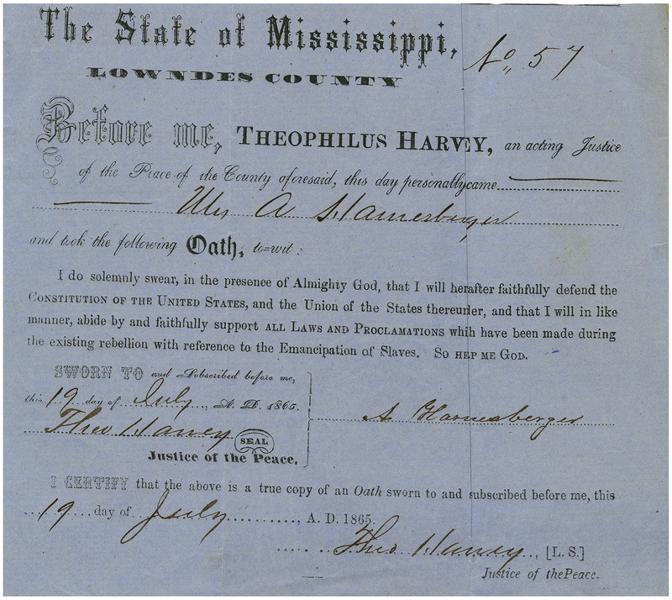 The State of Mississippi,
No. 57
LOWNDES COUNTY
Before me, THEOPHILUS HARVEY, an acting Justice
of the Peace of the County aforesaid, this day personally came
A Harnesberger
and took the following Oath, to=wit:
I do solemnly swear, in the presence of Almighty God, that I will herafter faithfully defend the
CONSTITUTION OF THE UNITED STATES, and the Union of the States thereunder, and that I will in like
manner, abide by and faithfully support ALL LAWS AND PROCLAMATIONS whih have been made during
the existing rebellion with reference to the Emancipation of Slaves. SO HEP ME GOD.
SWORN TO and Subscribed before me,
this 19 day of July, A. D. 1865.
A Harnesberger
Theo Harvey SEAL
Justice of the Peace.
I CERTIFY that the above is a true copy of an Oath sworn to and subscribed before me, this
19 day of July, A. D. 1865.
Theo Harvey, [L. S.]
Justice of the Peace.